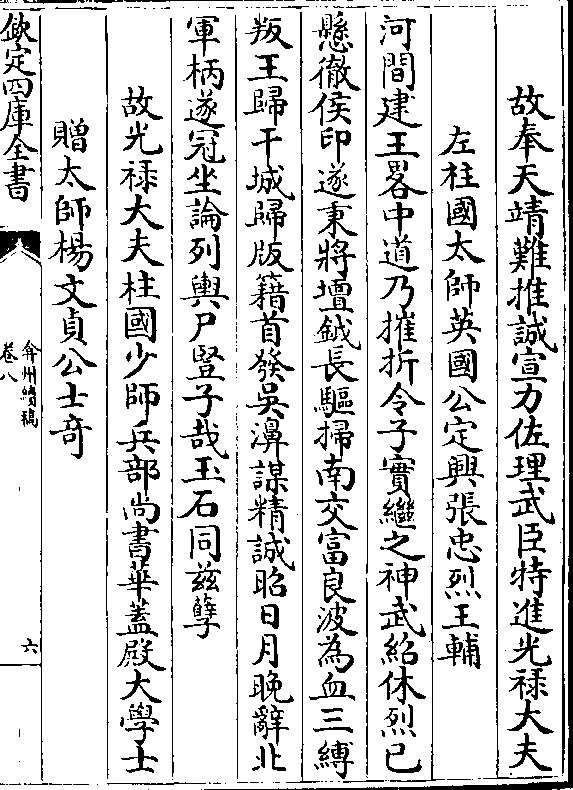 故奉天靖難推誠宣力佐理武臣特進光祿大夫
左柱國太師英國公定興張忠烈王輔
河間建王畧中道乃摧折令子實繼之神武紹休烈已
懸徹侯印遂秉將壇鉞長驅掃南交富良波為血三縛
叛王歸干城歸版籍首發吳濞謀精誠昭日月晚辭北
軍柄遂冠坐論列輿尸豎子哉玉石同兹孽
故光祿大夫柱國少師兵部尚書華蓋殿大學士
贈太師楊文貞公士竒
欽定四庫全書
弇州續稿
卷八
六